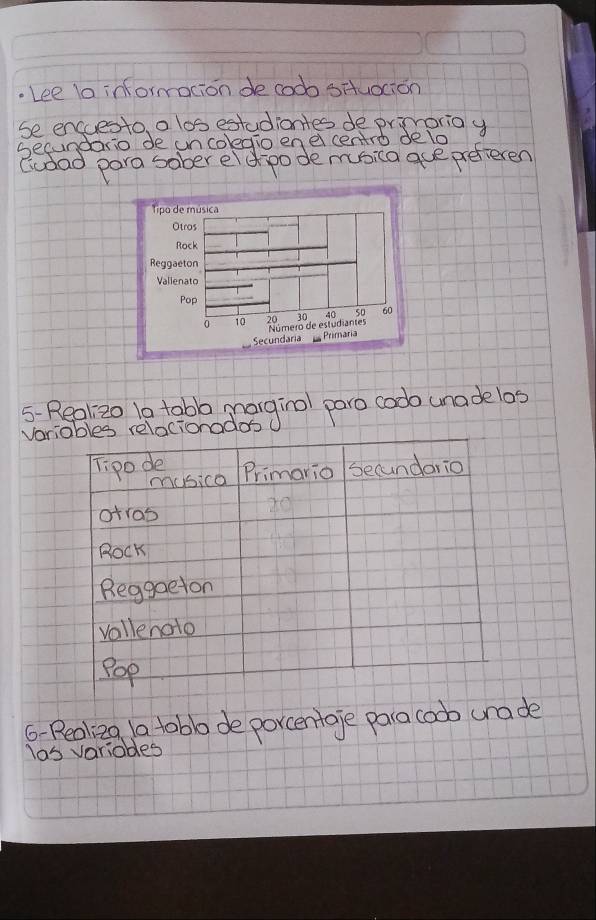 . Lee la información de cada situación
Se encuesta a los estudiantes de primaria y
Secundaria de un colegio en el centro de la
Ciudad para saber el tipo de musica que prefieren
Tipo de música
Otros
Rock
Reggaeton
Vallenato
Pop
0 10 20 30 40 50 60
Número de estudiantes
Secundaria Primaria
5-Realiza la tabla marginal para cada una de las
variables relacionadas
Tipo de musica Primaria Secundaria
otras 20
Rock
Reggaeton
vallenato
Pop
6-Realiza la tabla de porcentaje para cada una de
las variables